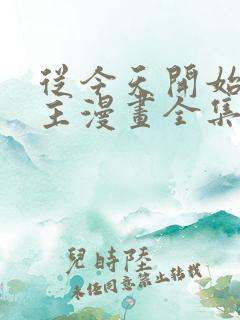 從今天開始
王漫畫全集
兒時陸
未經同意禁止轉載